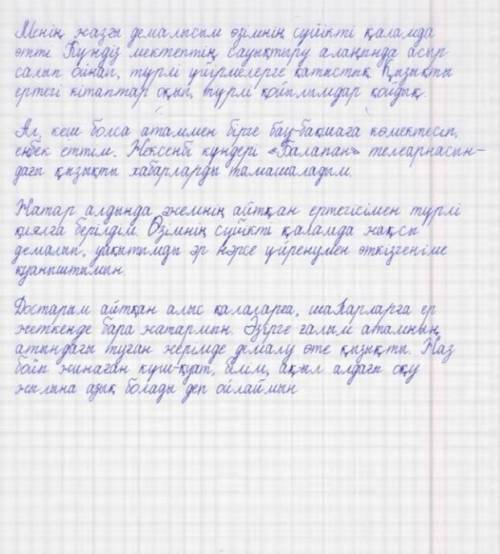 Менің жазғы демалысым өзімнің сүйікті қаламда
өтті Күндіз мектептің сауықтыру алаңында асыр
салып ойнап, түрлі үйірмелерге қатыстық Қызықты
ертегі кітаптар оқып, түрлі қойылымдар қойдық.
Ал, кеш болса атаммен бірге бау-бақшаға көмектесіп,
еңбек еттім. Жексенбі күндері «Балапан» телеарнасын-
дағы қызықты хабарларды тамашаладым.
Жатар алдында әжемнің айтқан ертегісімен түрлі
қиялға берілдім. Өзімнің сүйікті қаламда жақсы
демалып, уақытымды әр нәрсе үйренумен өткізгеніме
қуаныштымын.
Достарым айтқан алыс қалаларға, шаһарларға ер
жеткенде бара жатармын. Әзірге ғалым атамның
атындағы туған жерімде демалу өте қызықты. Жаз
бойы жинаған күш-қуат, білім, ақыл алдағы оқу
жылына азық болады деп ойлаймын